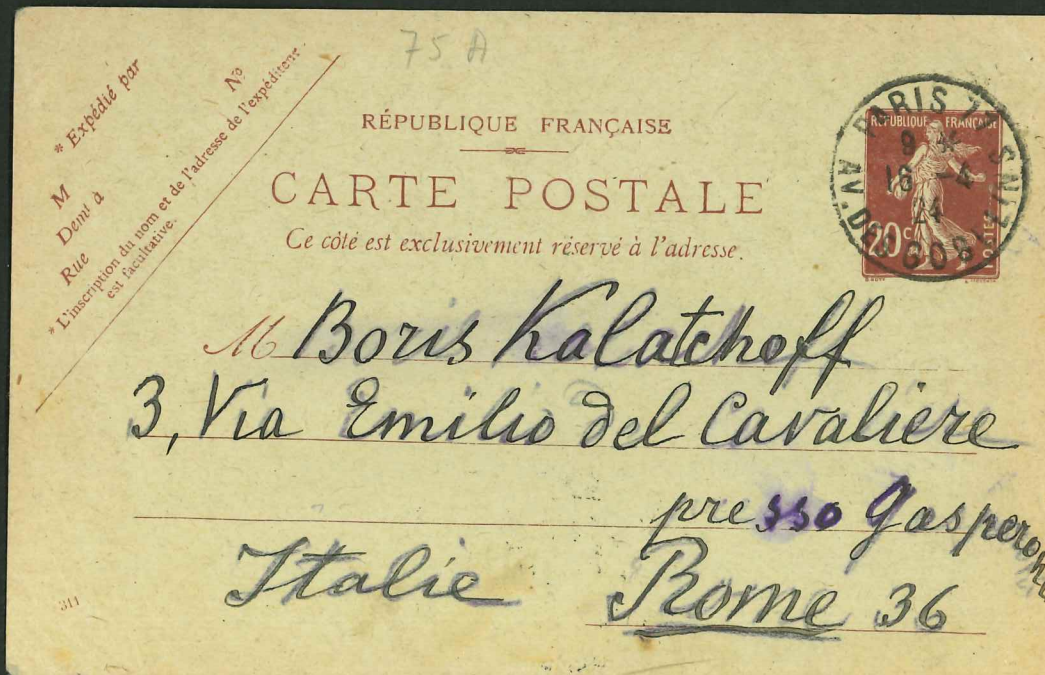 75 A
* Expédié par
M
Demt à
Rue Nº
* L'inscription du nom et de l'adresse de l'expéditeur
est facultative.
RÉPUBLIQUE FRANÇAISE
CARTE POSTALE
Ce côté est exclusivement réservé à l'adresse.
RÉPUBLIQUE FRANÇAISE
20c POSTES
PARIS
9
16 - 4
24
AV. DES GOB
M Boris Kalatchoff
3, Via Emilio del Cavaliere
presso Gasperoni
Italie Rome 36
311